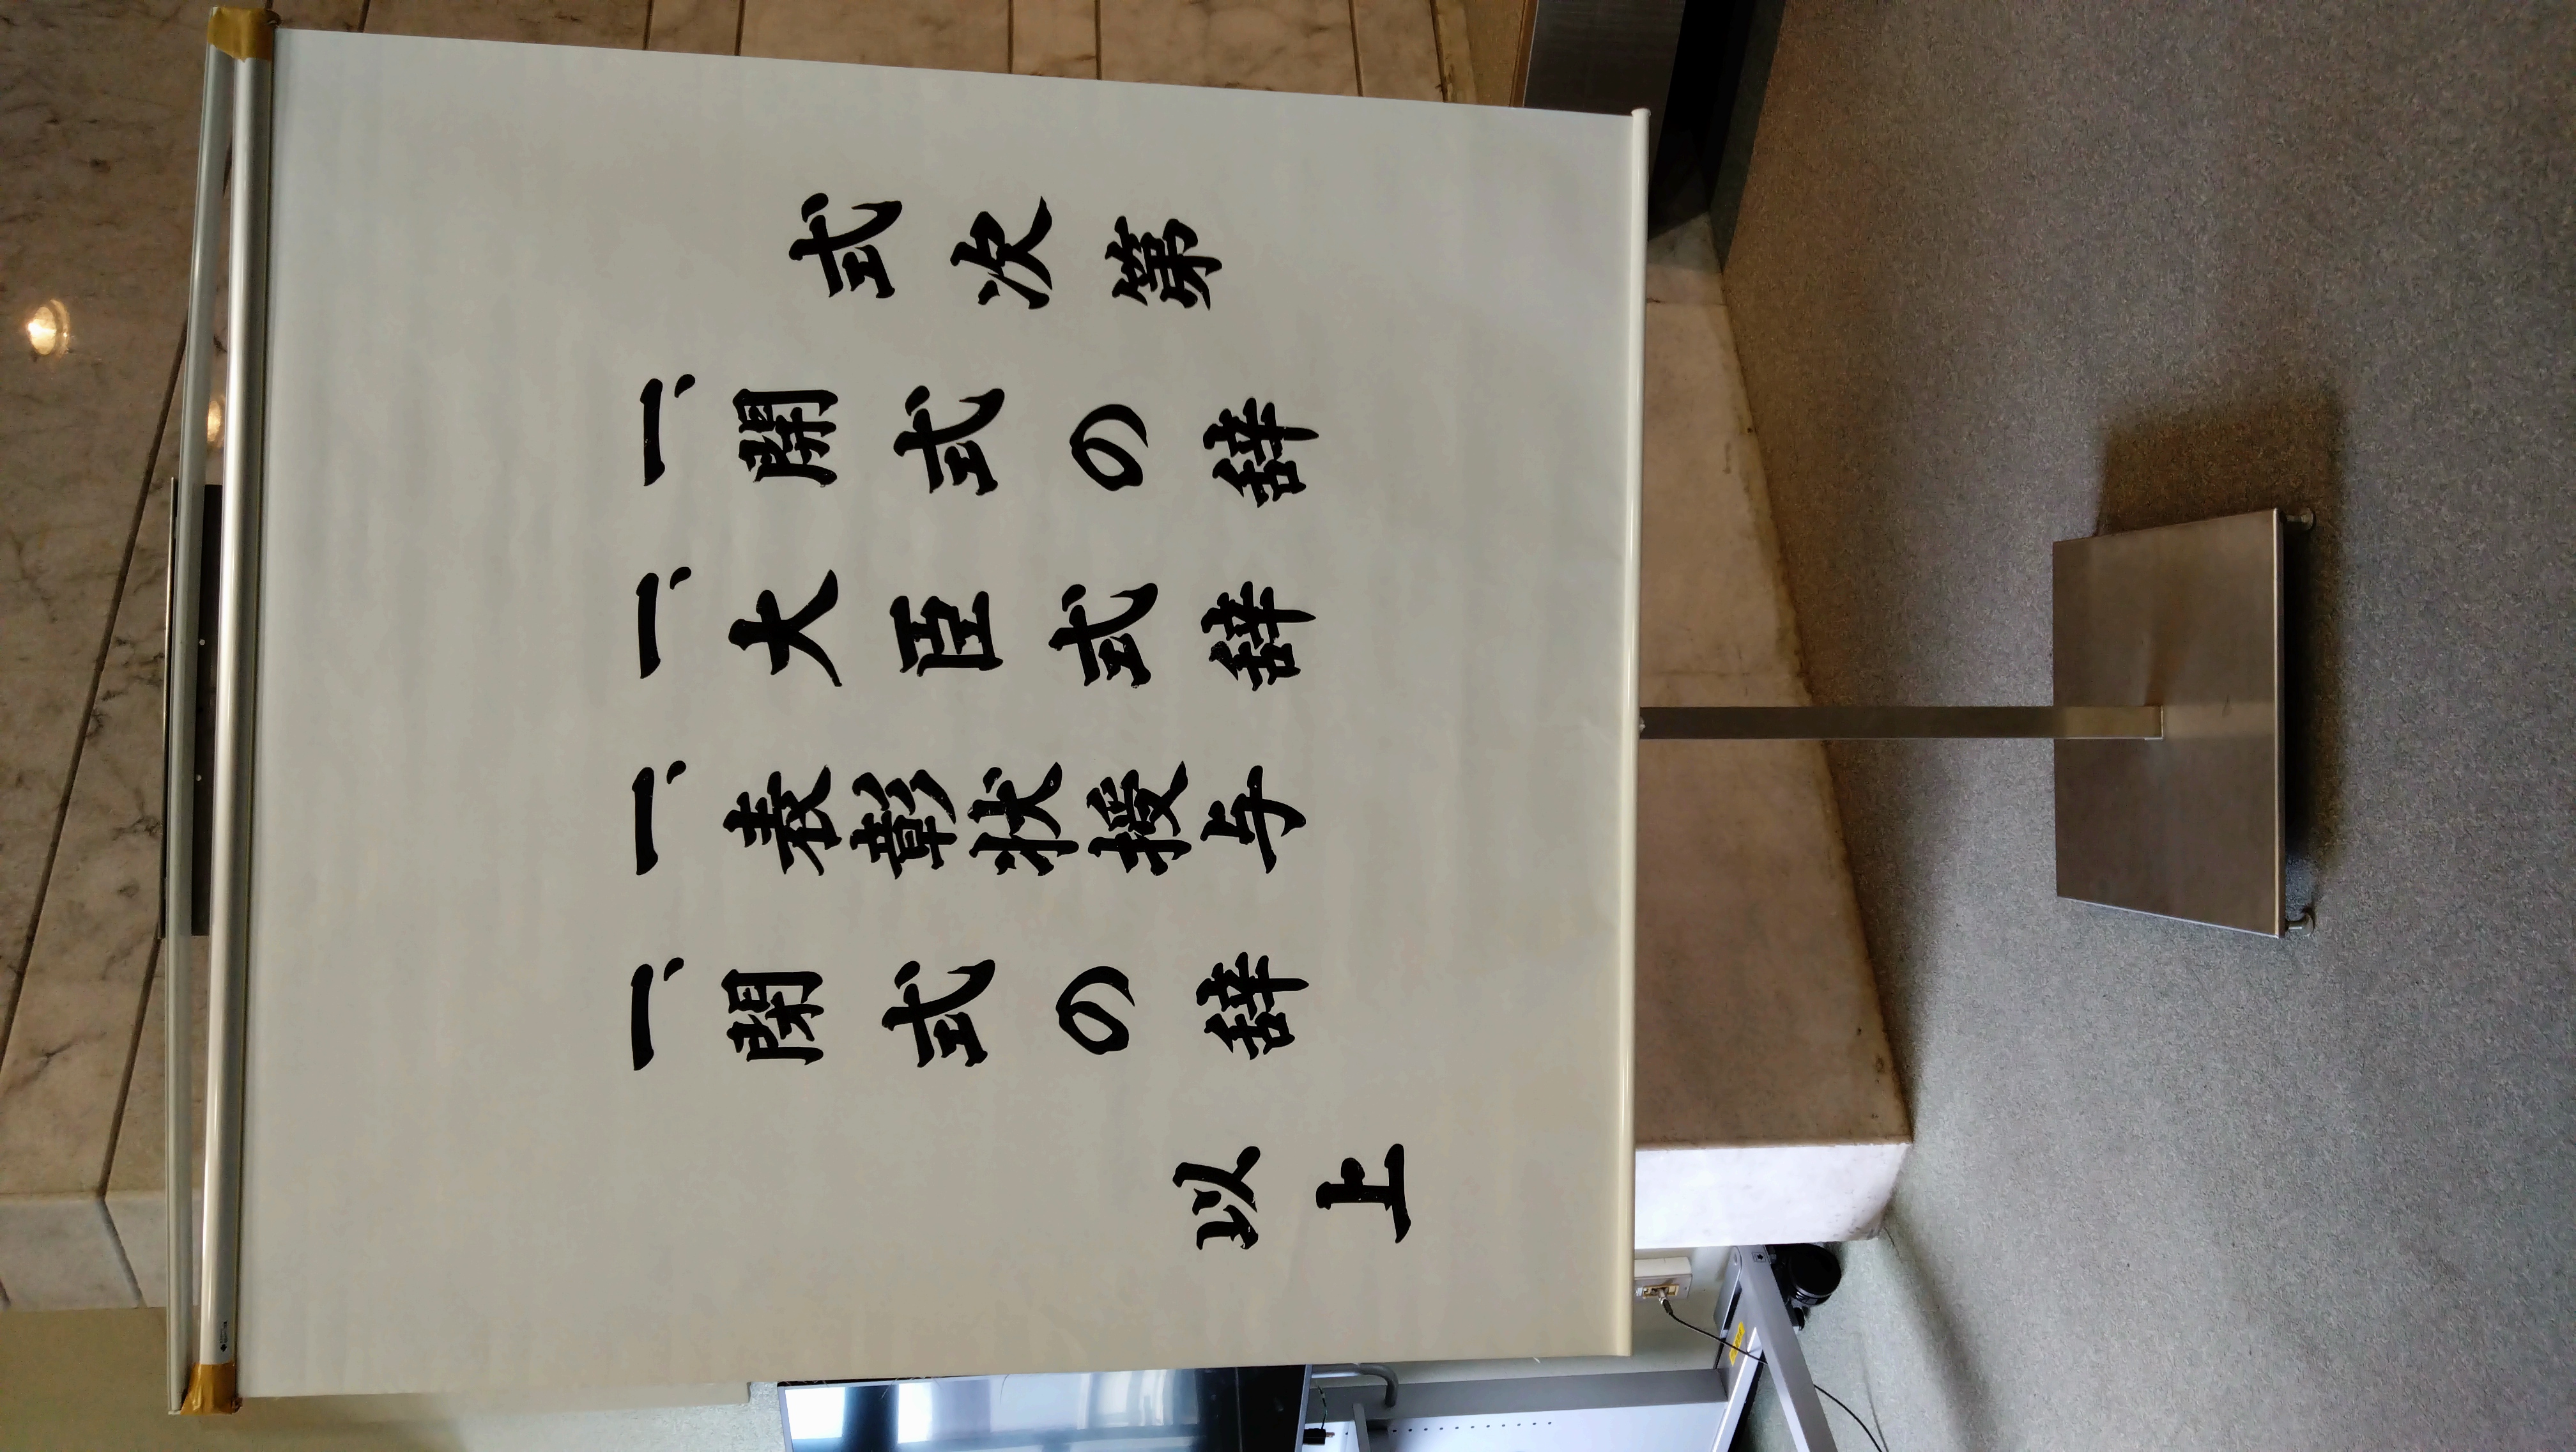 式次第
一、開式の辞
一、大臣式辞
一、表彰状授与
一、閉式の辞
以上